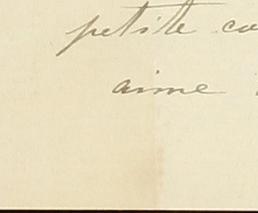 petite co
aime